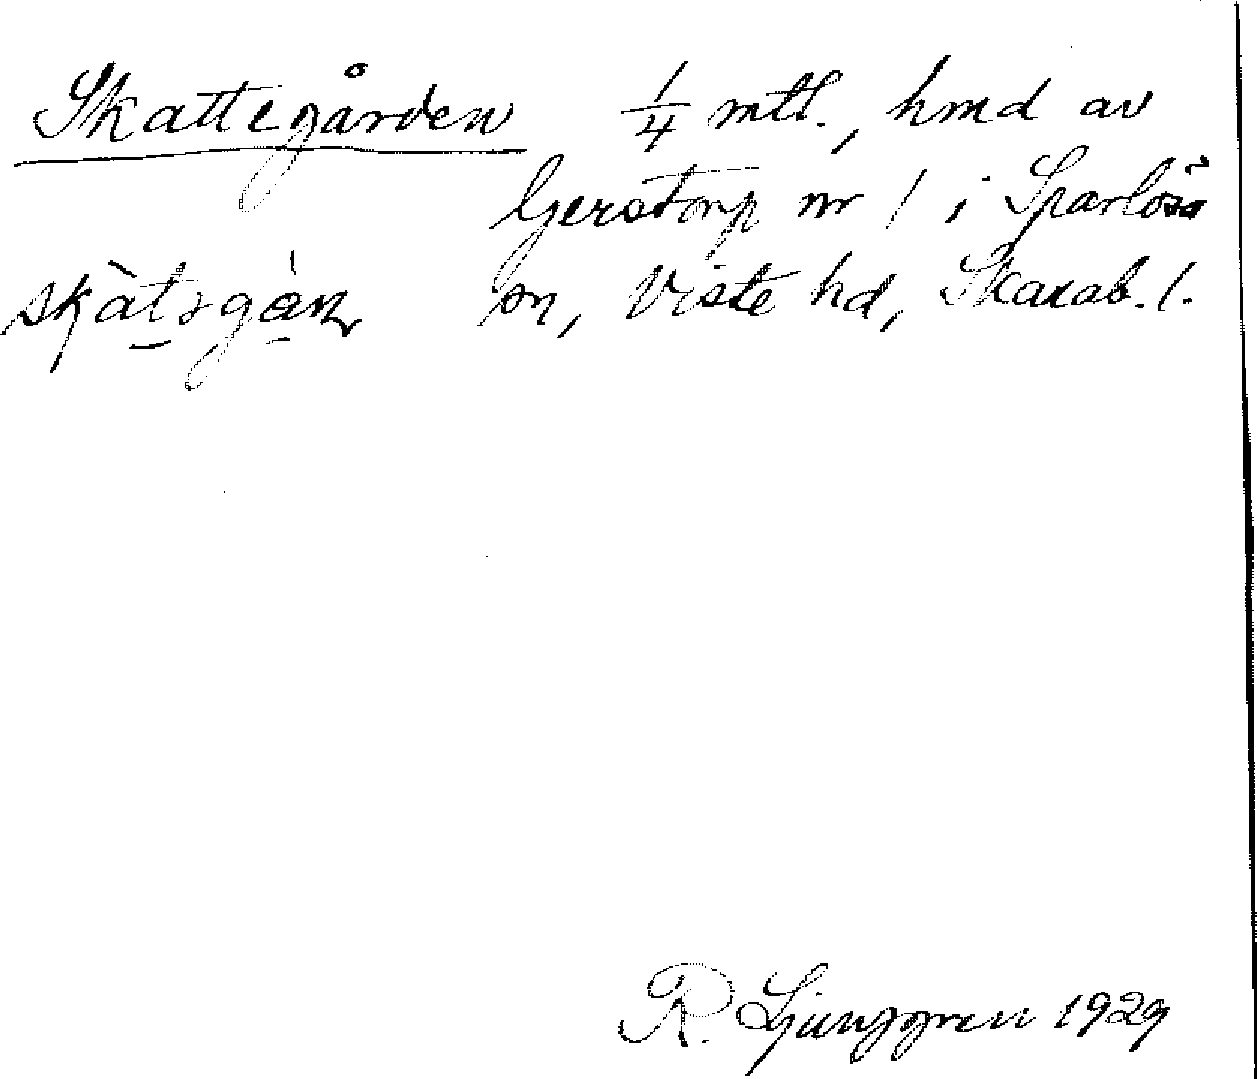 Skattegården 1/4 mtl., hmd av
Gerstorp nr 1 i Sparlösa
skàtsgàn sn, Viste hd, Skarab. l.
R. Ljunggren 1929